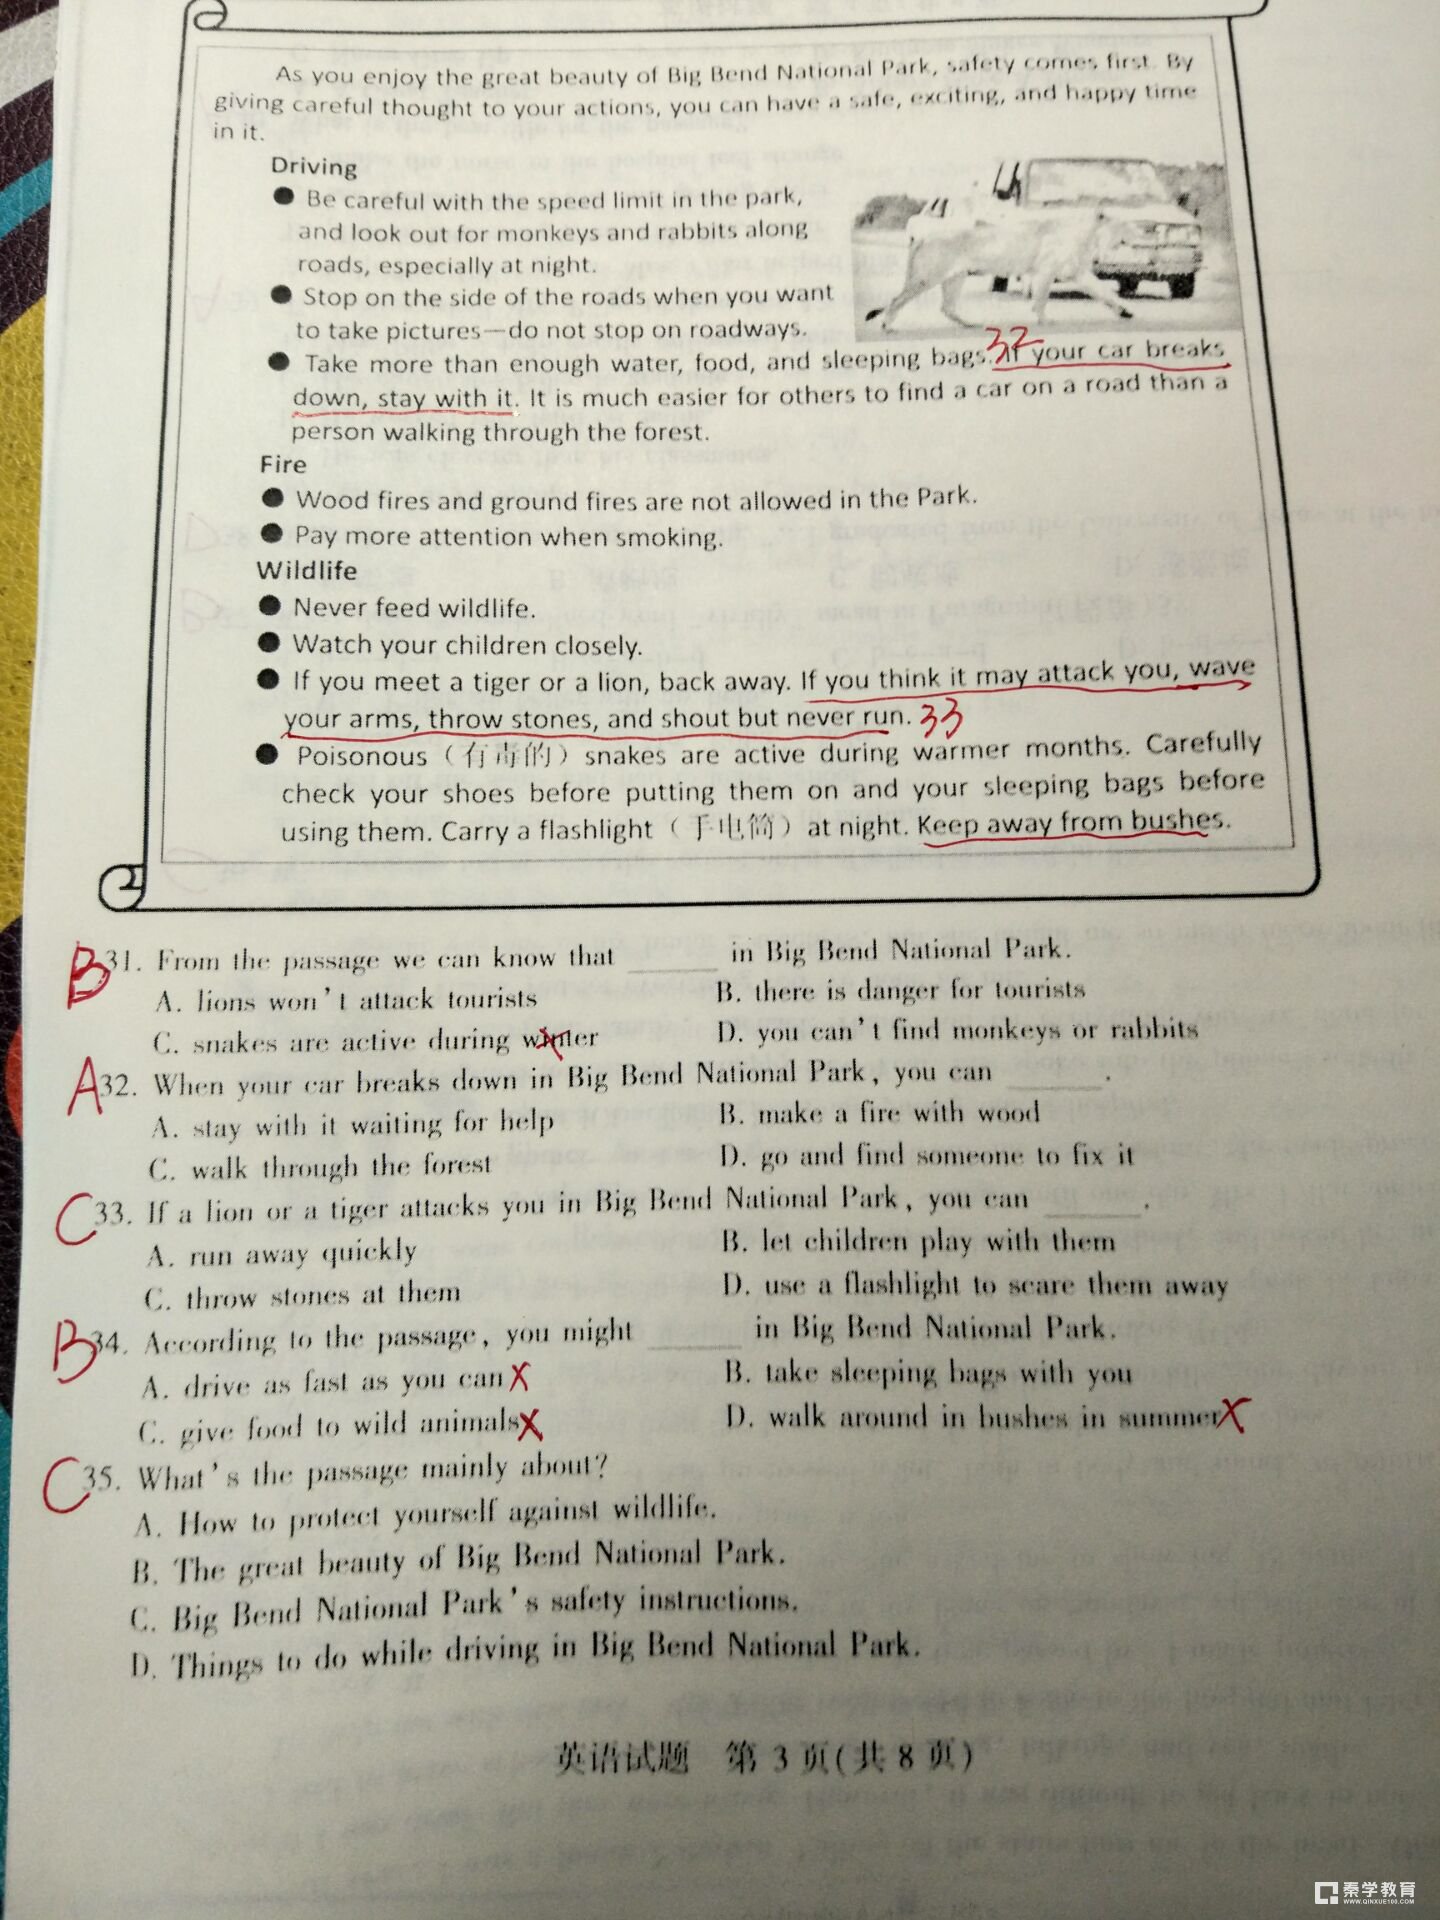 As you enjoy the great beauty of Big Bend National Park, safety comes first. By
giving careful thought to your actions, you can have a safe, exciting, and happy time
in it.
Driving
● Be careful with the speed limit in the park,
and look out for monkeys and rabbits along
roads, especially at night.
● Stop on the side of the roads when you want
to take pictures—do not stop on roadways.
32
● Take more than enough water, food, and sleeping bags. If your car breaks
down, stay with it. It is much easier for others to find a car on a road than a
person walking through the forest.
Fire
● Wood fires and ground fires are not allowed in the Park.
● Pay more attention when smoking.
Wildlife
● Never feed wildlife.
● Watch your children closely.
● If you meet a tiger or a lion, back away. If you think it may attack you, wave
your arms, throw stones, and shout but never run. 33
● Poisonous（有毒的）snakes are active during warmer months. Carefully
check your shoes before putting them on and your sleeping bags before
using them. Carry a flashlight（手电筒）at night. Keep away from bushes.
B 31. From the passage we can know that ______ in Big Bend National Park.
A. lions won't attack tourists B. there is danger for tourists
C. snakes are active during winter D. you can't find monkeys or rabbits
A 32. When your car breaks down in Big Bend National Park, you can ______.
A. stay with it waiting for help B. make a fire with wood
C. walk through the forest D. go and find someone to fix it
C 33. If a lion or a tiger attacks you in Big Bend National Park, you can ______.
A. run away quickly B. let children play with them
C. throw stones at them D. use a flashlight to scare them away
B 34. According to the passage, you might ______ in Big Bend National Park.
A. drive as fast as you can X B. take sleeping bags with you
C. give food to wild animals X D. walk around in bushes in summer X
C 35. What's the passage mainly about?
A. How to protect yourself against wildlife.
B. The great beauty of Big Bend National Park.
C. Big Bend National Park's safety instructions.
D. Things to do while driving in Big Bend National Park.
英语试题 第 3 页(共 8 页)
秦学教育
WWW.QINXUE100.COM